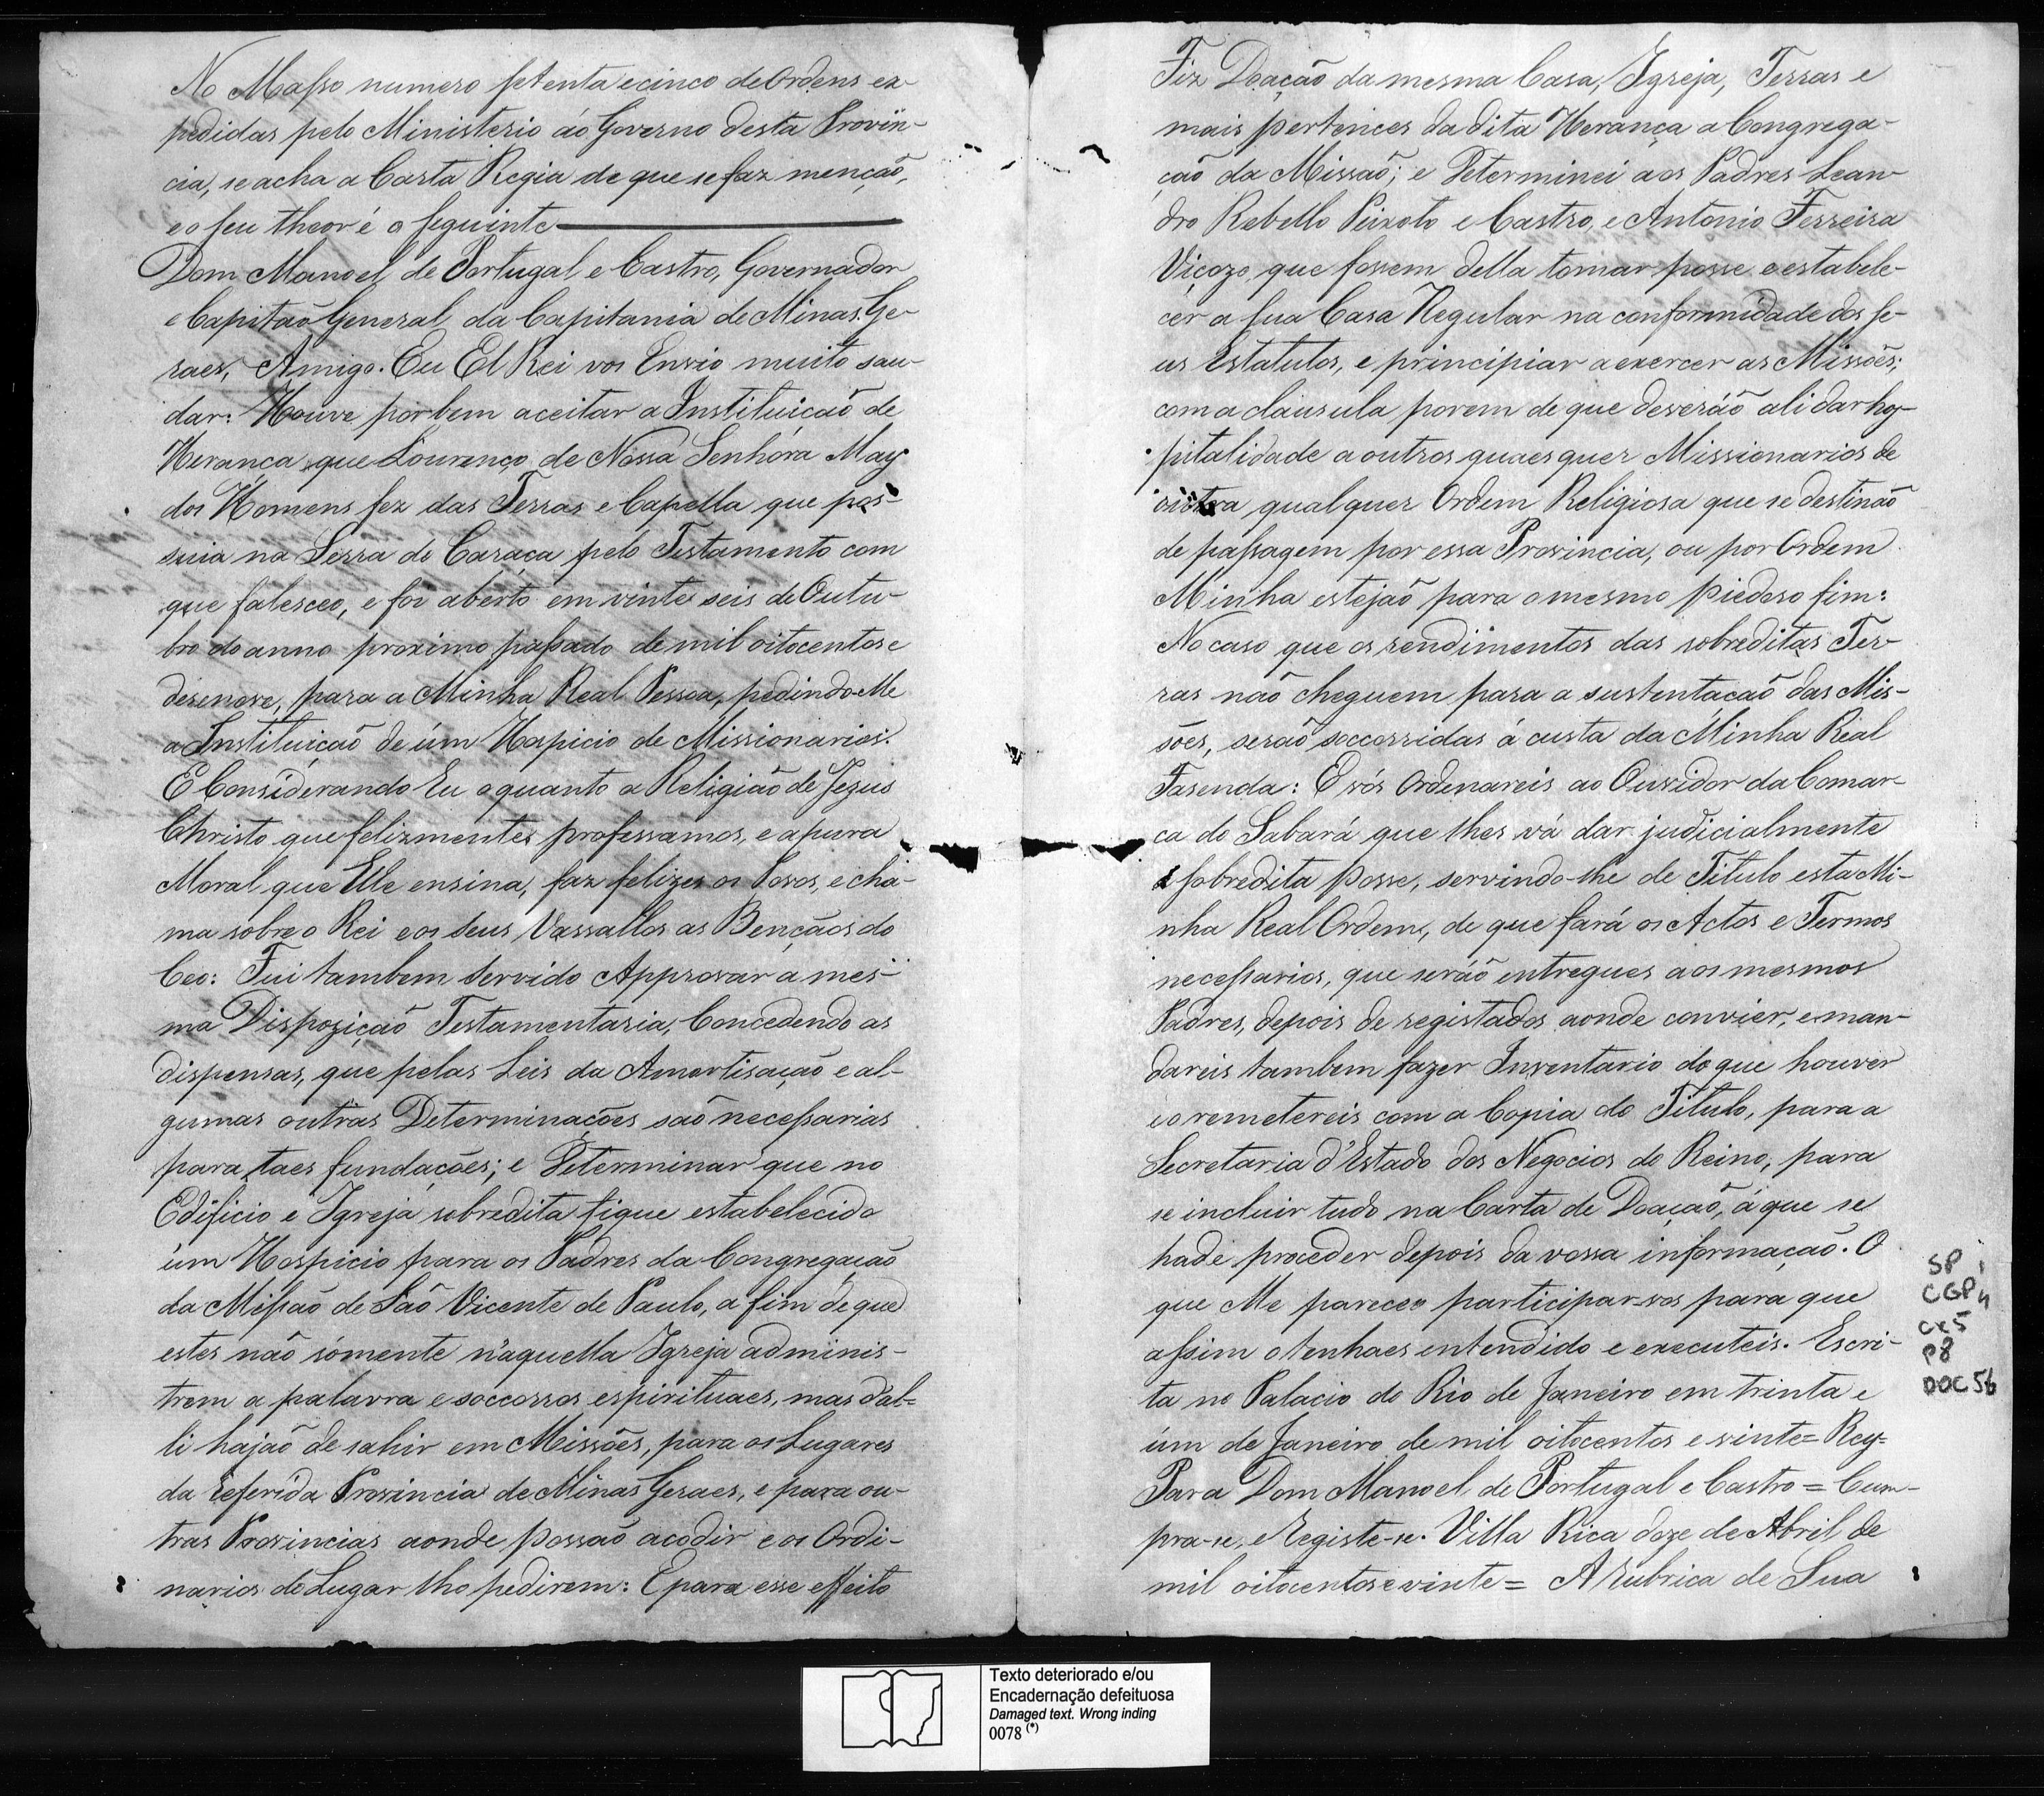 No Masso numero setenta e cinco de Ordens ex-
pedidas pelo Ministerio áo Governo desta Provin-
cia, se acha a Carta Regia de que se faz menção,
e o seu theor é o seguinte
Dom Manoel de Portugal e Castro, Governador
e Capitaõ General da Capitania de Minas Ge-
raes, Amigo. Eu El Rei vos Envio muito sau-
dar: Houve por bem aceitar a Instituiçaõ de
Herança que Lourenço de Nossa Senhóra May
dos Homens fez das Terras e Capella que pos-
suia na Serra do Caraça pelo Testamento com
que falesceo, e foi aberto em vinte seis de Outu-
bro do anno proximo passado de mil oitocentos e
dezenove, para a Minha Real Pessoa, pedindo-Me
a Instituiçaõ de úm Hospicio de Missionarios.
E Considerando Eu o quanto a Religiaõ de Jezus
Christo que felizmente professamos, e a pura
Moral que Elle ensina, faz felizes os Povos, e cha-
ma sobre o Rei e os Seus Vassallos as Bençaõs do
Ceo: Fui tambem Servido Approvar a mes-
ma Dispoziçaõ Testamentaria, Concedendo as
dispensas, que pelas Leis da Amortisaçaõ e al-
gumas outras Determinações saõ necessarias
para taes fundações; e Determinar que no
Edificio e Igreja sobredita fique estabelecido
úm Hospicio para os Padres da Congregaçaõ
da Missaõ de Saõ Vicente de Paulo, a fim de que
estes naõ sómente n'aquella Igreja adminis-
trem a palavra e soccorros espirituaes, mas d'al-
li hajaõ de sahir em Missões, para os Lugares
da referida Provincia de Minas Geraes, e para ou-
tras Provincias aonde possaõ acodir e os Ordi-
narios do Lugar lho pedirem: E para esse effeito
Fiz Doaçaõ da mesma Casa, Igreja, Terras e
mais pertences da dita Herança a Congrega-
çaõ da Missaõ; e Determinei aos Padres Lean-
dro Rebello Peixoto e Castro, e Antonio Ferreira
Viçozo que fossem della tomar posse e estabele-
cer a sua Casa Regular na conformidade dos se-
us Estatutos, e principiar a exercer as Missões;
com a cláusula porem de que deveráõ ali dar hos-
pitalidade a outros quaesquer Missionarios de
outra qualquer Ordem Religiosa que se destinaõ
de passagem por essa Provincia, ou por Ordem
Minha estejaõ para o mesmo piedoso fim:
No caso que os rendimentos das sobreditas Ter-
ras naõ cheguem para a sustentacaõ das Mis-
sões, seraõ soccorridas á custa da Minha Real
Fasenda: E vós Ordenareis ao Ouvidor da Comar-
ca do Sabará que lhes vá dar judicialmente
a sobredita posse, servindo-lhe de Titulo esta Mi-
nha Real Ordem, de que fará os Actos e Termos
necessarios, que seráõ entregues aos mesmos
Padres, depois de registados aonde convier, e man-
dareis tambem fazer Inventario do que houver
e o remetereis com a Copia do Titulo, para a
Secretaria d'Estado dos Negocios do Reino, para
se incluir tudo na Carta de Doaçaõ, á que se
hade proceder depois da vossa informaçaõ. O
que Me pareceo participar-vos para que
assim o tenhaes entendido e executeis. Escri-
ta no Palacio do Rio de Janeiro em trinta e
úm de Janeiro de mil oitocentos e vinte = Rey =
Para Dom Manoel de Portugal e Castro = Cum-
pra-se, e Registe-se. Villa Rica doze de Abril de
mil oitocentos e vinte = A rubrica de Sua
SP
CGP 4
Cx 5
P8
DOC 56
Texto deteriorado e/ou
Encadernação defeituosa
Damaged text. Wrong inding
0078 (*)